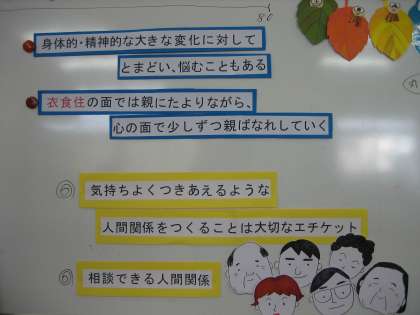 身体的・精神的な大きな変化に対して
とまどい、悩むこともある
衣食住の面では親にたよりながら、
心の面で少しずつ親ばなれしていく
気持ちよくつきあえるような
人間関係をつくることは大切なエチケット
相談できる人間関係